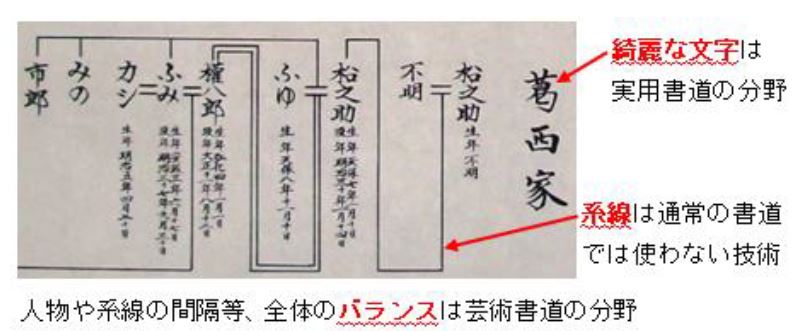 綺麗な文字は
実用書道の分野
系線は通常の書道
では使わない技術
葛西家
松之助 生年不明
不明
松之助
ふゆ 生年 天保八年十一月十日
権八郎
ふみ
カシ 生年 明治五年四月五十日
みの
市郎
人物や系線の間隔等、全体のバランスは芸術書道の分野